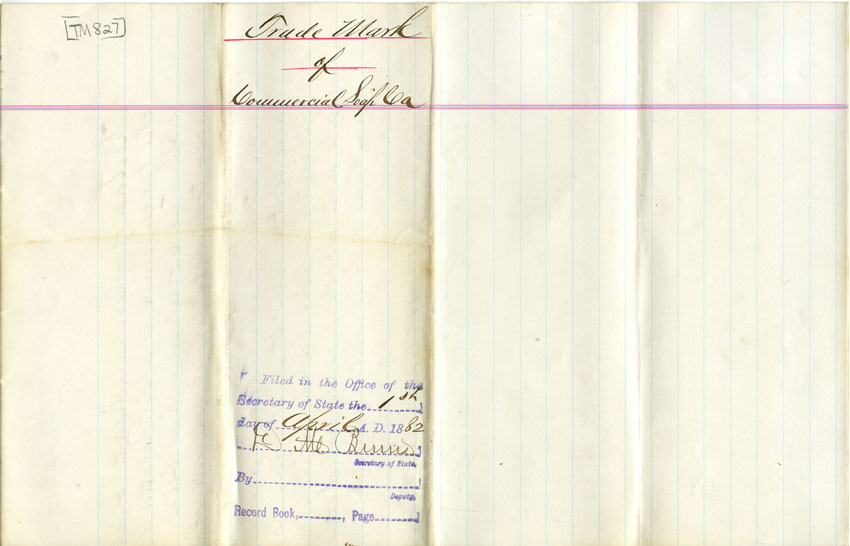 [TM 827]
Trade Mark
of
Commercial Soap Co
Filed in the Office of the
Secretary of State the 1st
day of April A.D. 1882
Secretary of State.
By
Deputy.
Record Book, , Page